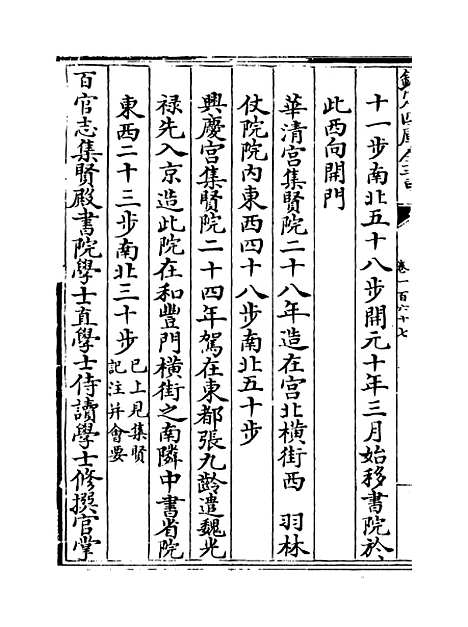 欽定四庫全書
卷一百六十七
十一步南北五十八步開元十年三月始移書院於
此西向開門
華清宫集賢院二十八年造在宫北横街西 羽林
仗院院内東西四十八步南北五十步
興慶宫集賢院二十四年駕在東都張九齡遣魏光
祿先入京造此院在和豐門横街之南隣中書省院
東西二十三步南北三十步已上見集賢
記注并會要
百官志集賢殿書院學士直學士侍讀學士修撰官掌